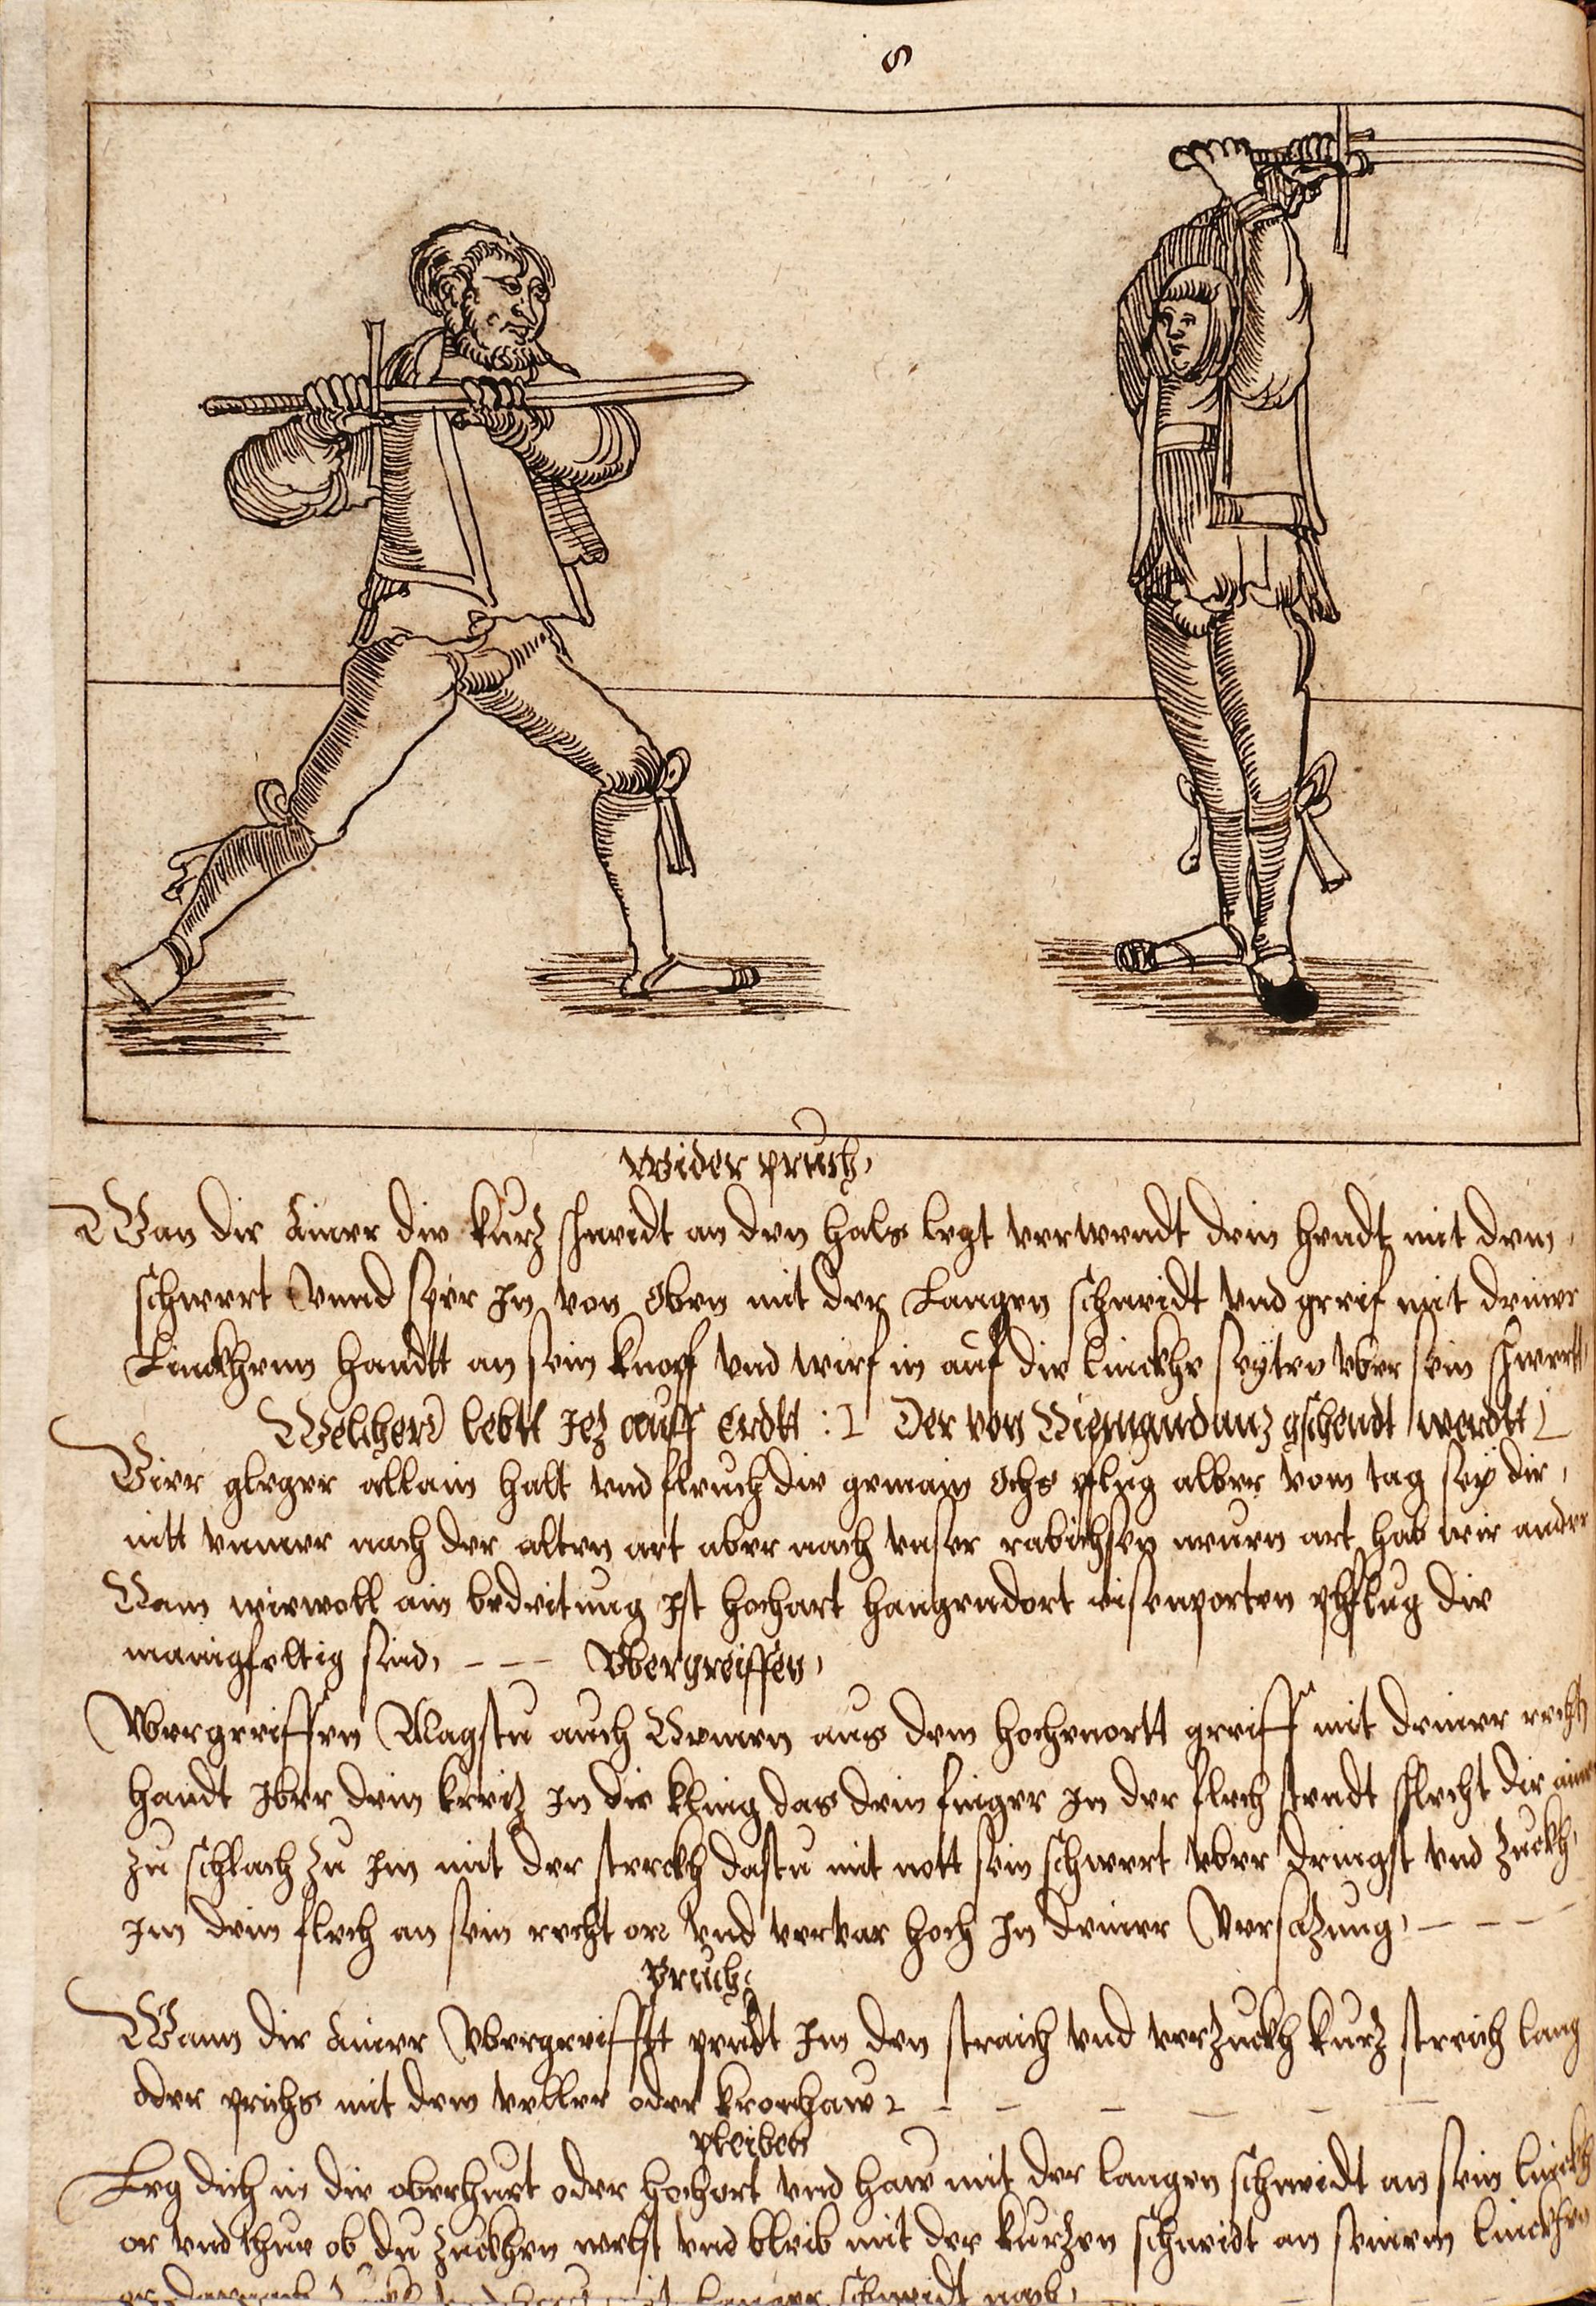 8
Wider pruch,
Wan dir Ainer die kurz schneidt an den hals legt verwendt dein hendt mit dem
schwert Vnnd sper In von Oben mit der Langen schneidt Vnd greif mit deiner
Linckhenn handtt an sein knopf Vnd wirf in auf die linckhe seyten vber sein schwertt,
Welcher lebtt Jez auff Erdtt : Der von Niemandt gschendt werdtt
Vier gleger allain halt vnd fleuch die gemain Ochs pflug alber vom tag sey dir,
nitt vnmer nach der alten art aber nach vnser neuen art hab wir ander
Nam wiewoll ain bedeitung Ist hochart hangendort eisenporten pfflug die
manigfeltig sind, - - - Vbergreiffen,
Vbergreiffen Magstu auch Nemen aus dem hochenortt greiff mit deiner recht
handt Iber dein kreiz In die kling das dein finger In der flech stendt flecht dir
zu schlach zu Im mit der sterckh dastu mit nott sein schwert vber dringst vnd zuckh
Im dein flech an sein recht or Vnd verfar hoch In deiner Versazung, - - - -
Pruch,
Wann dir Ainer Vbergreifft pendt Im den straich vnd verzuckh kurz streich lang
oder prichs mit dem veller oder kronhaw - - - - - -
pleiben
Leg dich in die oberhut oder hochort vnd haw mit der langen schneidt an sein linckh
or vnd thue ob du zuckhen welst vnd bleib mit der kurzen schneidt an seinem linckhen
langer schneidt nach,